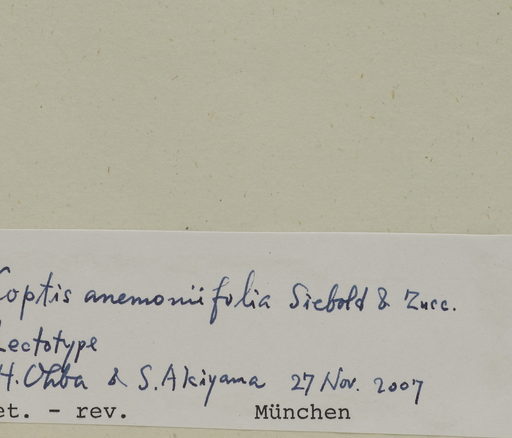 Coptis anemoniifolia Siebold & Zucc.
Lectotype
H. Ohba & S. Akiyama 27 Nov. 2007
et. - rev. München